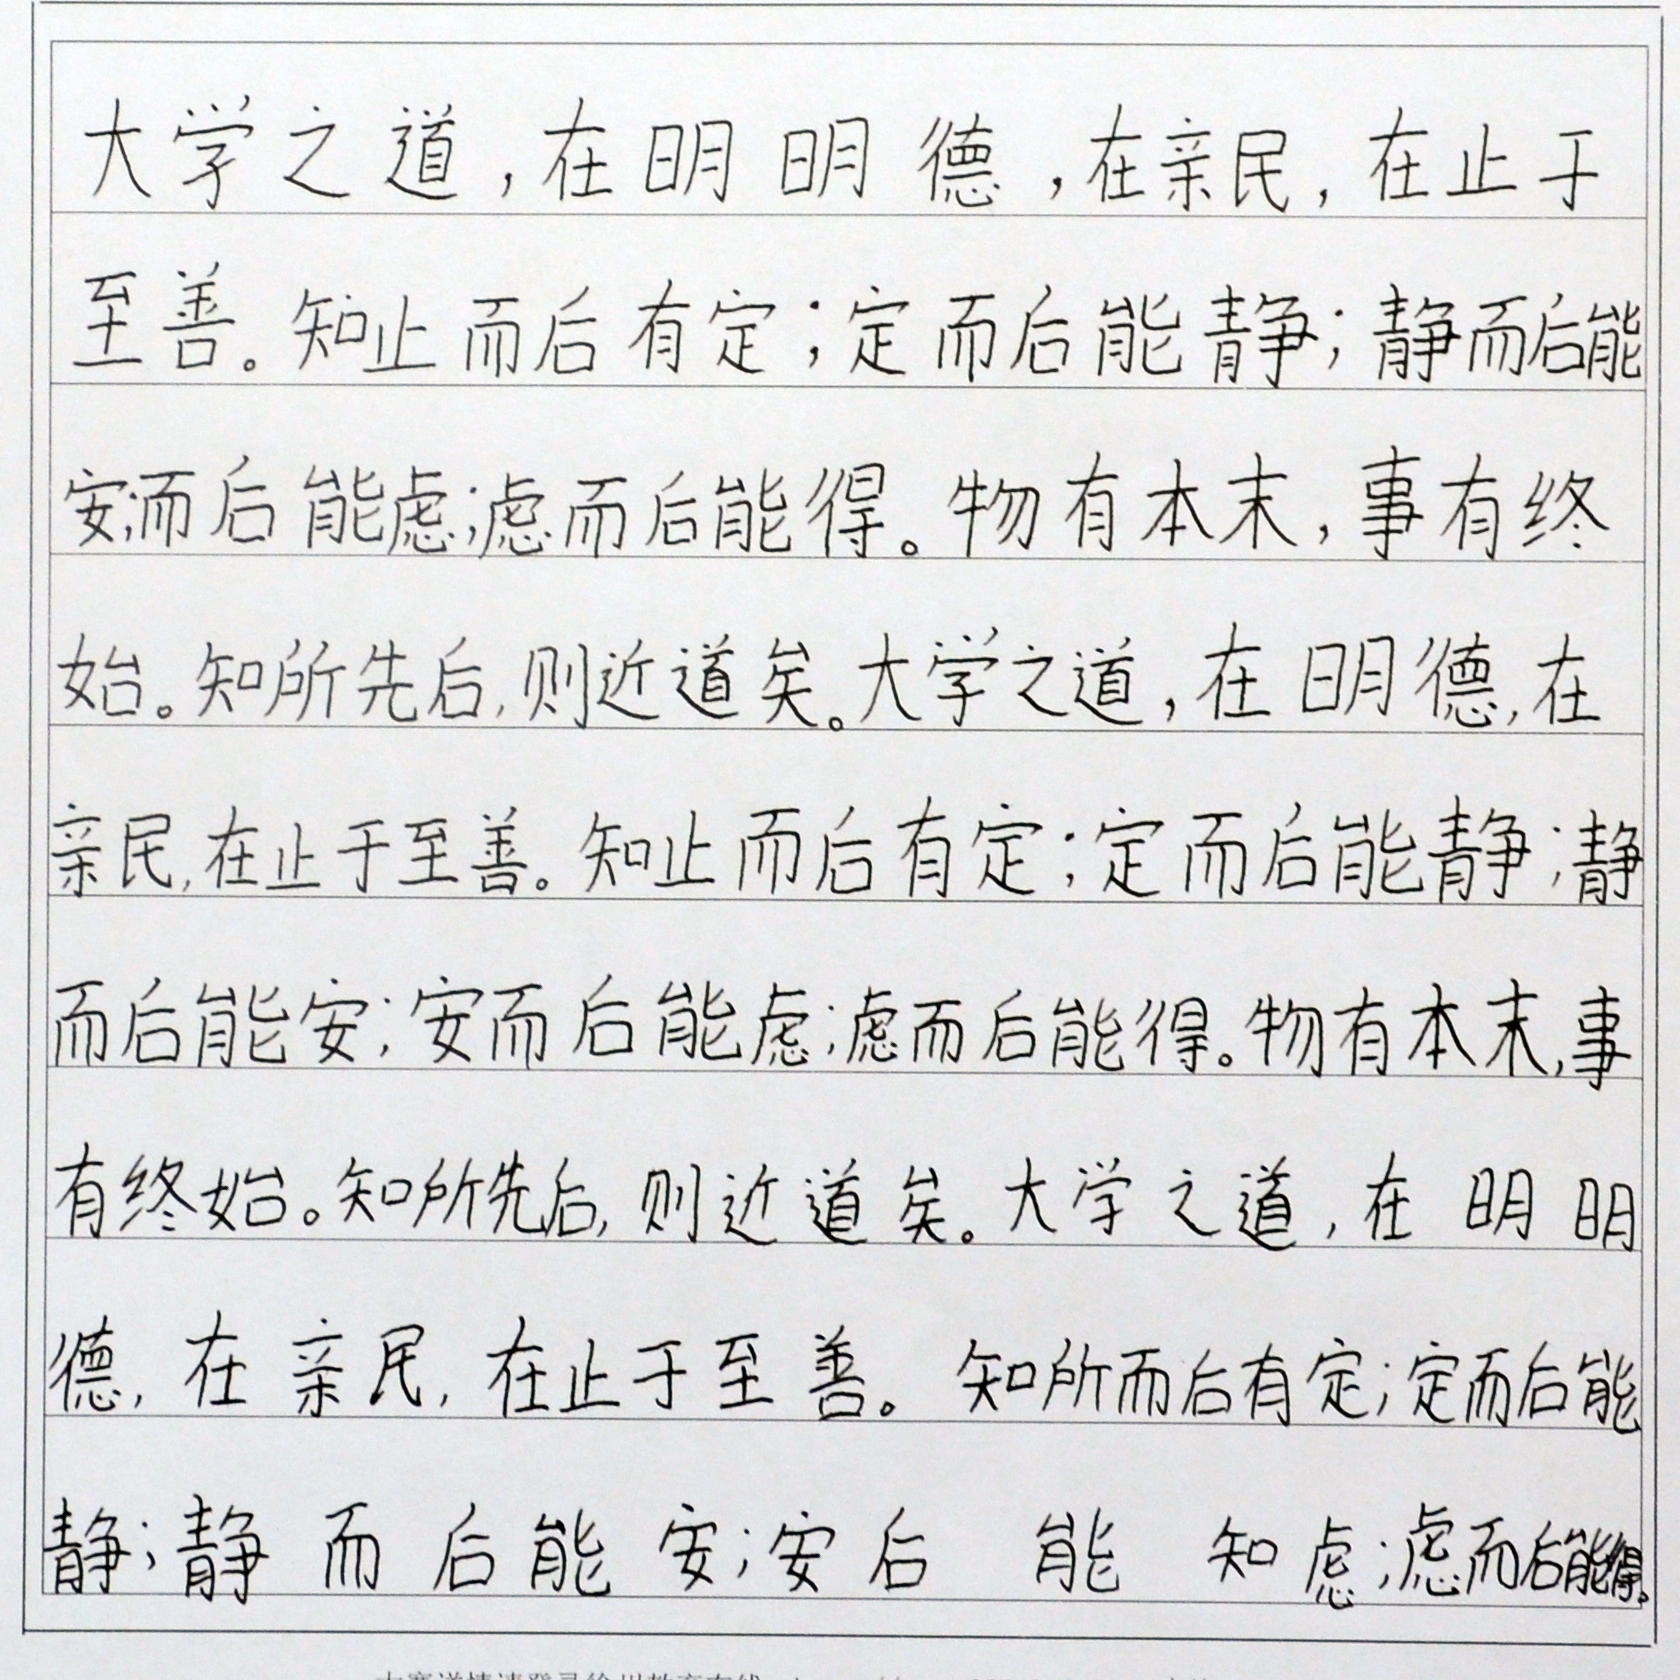 大学之道,在明明德,在亲民,在止于
至善。知止而后有定;定而后能静;静而后能
安;而后能虑;虑而后能得。物有本末,事有终
始。知所先后,则近道矣。大学之道,在明德,在
亲民,在止于至善。知止而后有定;定而后能静;静
而后能安;安而后能虑;虑而后能得。物有本末,事
有终始。知所先后,则近道矣。大学之道,在明明
德,在亲民,在止于至善。知所而后有定;定而后能
静;静而后能安;安后能知虑;虑而后能得。